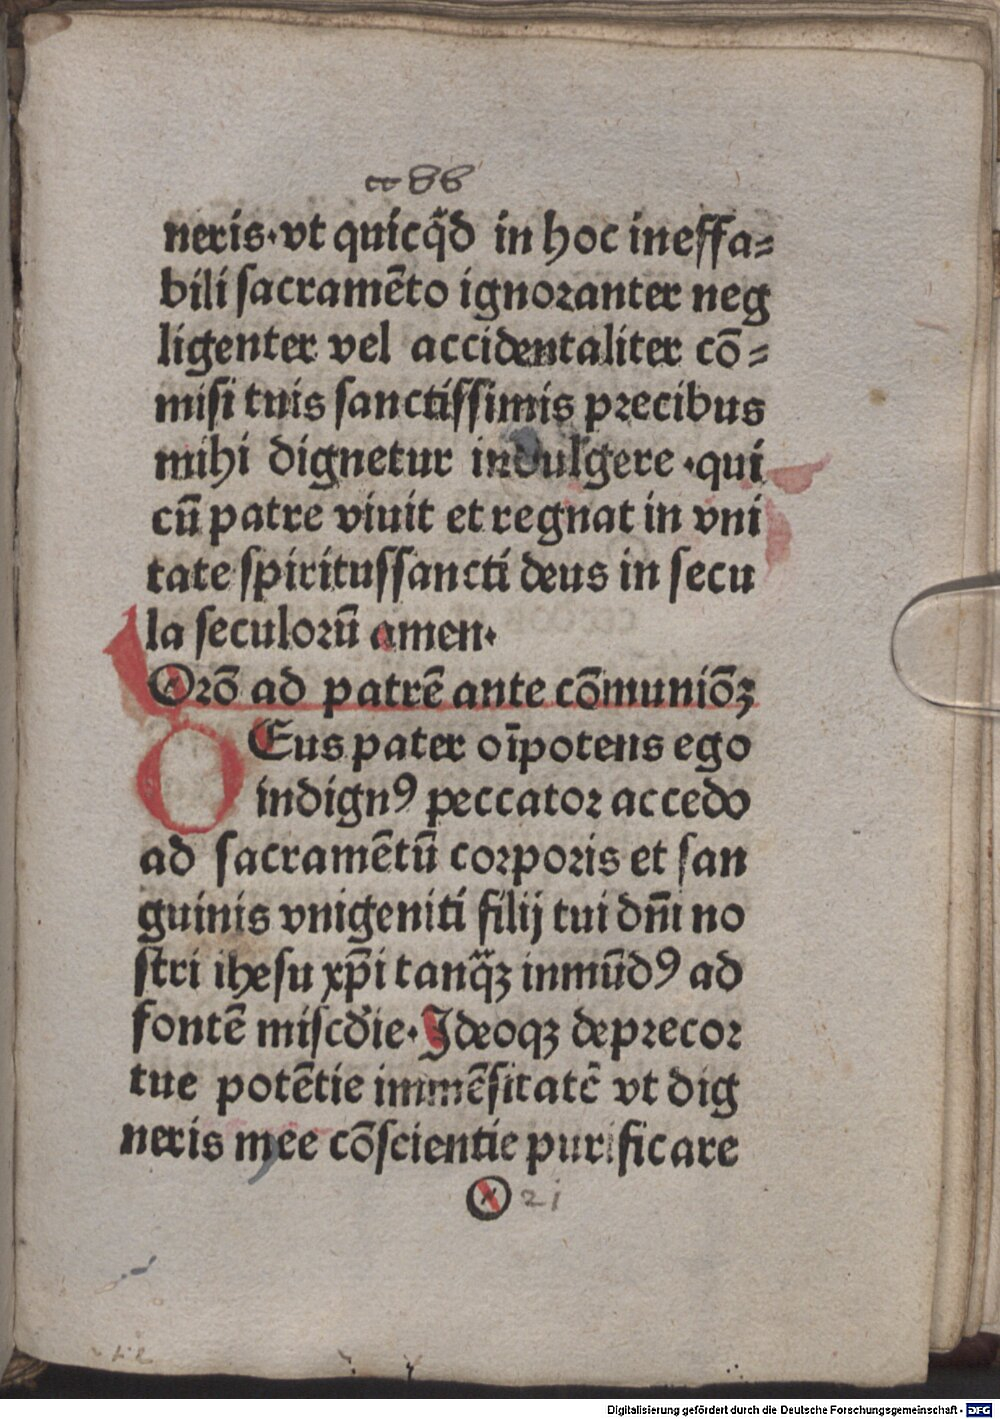 neris·vt quicq̃d in hoc ineffa⸗
bili sacramẽto ignoranter neg
ligenter vel accidentaliter cõ⸗
misi tuis sanctissimis precibus
mihi dignetur indulgere ·qui
cũ patre viuit et regnat in vni
tate spiritussancti deus in secu
la seculorũ amen·
Orõ ad patrẽ ante cõmuniõꝫ
DEus pater oĩpotens ego
indignꝰ peccator accedo
ad sacramẽtũ corporis et san
guinis vnigeniti filij tui dñi no
stri ihesu xp̃i tanq̃ꝫ inmũdꝰ ad
fontẽ miscd'ie· Jdeoqꝫ deprecor
tue potẽtie immẽsitatẽ vt dig
neris mee cõscientie purificare
21
Digitalisierung gefördert durch die Deutsche Forschungsgemeinschaft - DFG